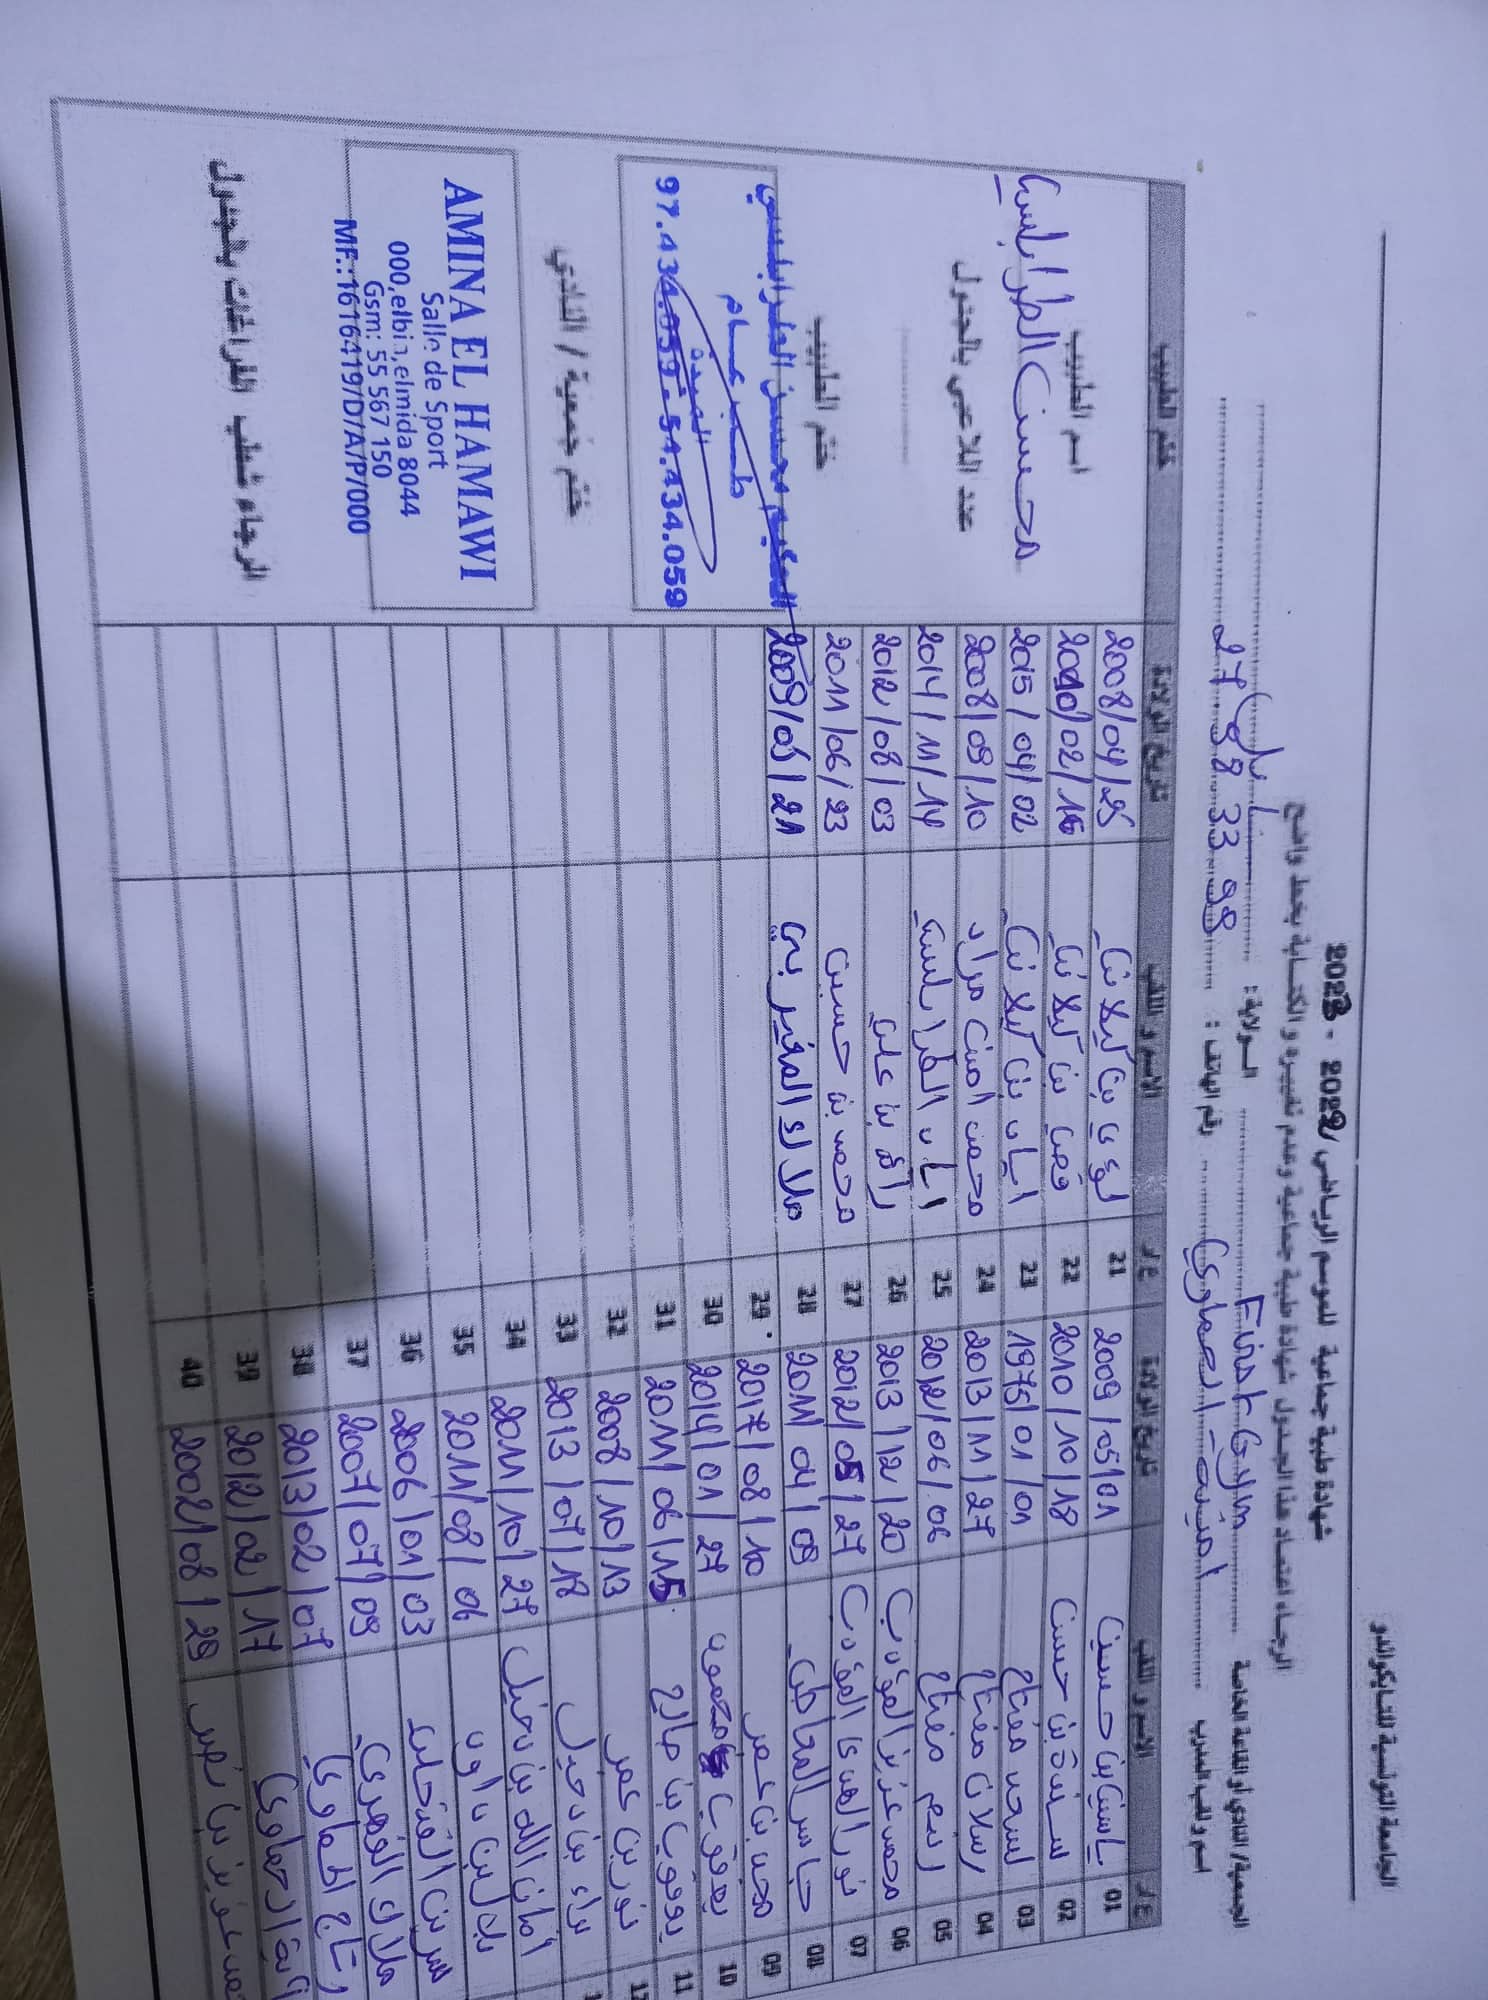 الجامعة التونسية للتايكواندو
شهادة طبية جماعية للموسم الرياضي 2022 - 2023
الرجاء اعتماد هذا الجدول شهادة طبية جماعية وعدم تغييره والكتابة بخط واضح
الجمعية/ النادي أو القاعة الخاصة First Gym الولاية : نابل
اسم و لقب المدرب امينة الحماوي رقم الهاتف : 27 38 33 98
ع.ر الاسم و اللقب تاريخ الولادة ع.ر الاسم و اللقب تاريخ الولادة ختم الطبيب
01 ياسين بن حسين 2009/05/01 21 لؤي بن كيلاني 2008/04/25
02 بن حسن 2010/10/18 22 بن كيلاني
03 مفتاح 1975/01/01 23 اياد بن كيلاني 2015/04/02
04 رسلان مفتاح 2013/11/27 24 محمد امين مراد 2008/09/10
05 مفتاح 2012/06/06 25 اياد الطرابلسي 2014/11/14
06 محمد عزيز المؤدب 2013/12/20 26 بن علي 2012/08/03
07 نور الهدى المؤدب 2012/05/27 27 محمد بن حسين 2011/06/23
08 2011/04/09 28 ملاك المغيربي 2009/05/21
09 محمد بن عمر 2017/08/10 29
10 يعقوب 2014/01/27 30
11 يعقوب بن صالح 2011/06/15 31
نور بن عمر 2008/10/13 32
براء بن دخيل 2013/07/18 33
امان الله بن دخيل 2011/10/27 34
بن داود 2011/08/06 35
2006/01/03 36
ملاك الفهري 2007/07/09 37
تاج الحماوي 2013/02/07 38
حماوي 2012/02/17 39
عزيز بن نصر 2002/08/29 40
اسم الطبيب
محسن الطرابلسي
عدد اللاعبي بالجدول
ختم الطبيب
الحكيم محسن الطرابلسي
طب عام
الميدة
97.434.059 - 54.434.059
ختم جمعية / النادي
AMINA EL HAMAWI
Salle de Sport
000,elbir,elmida 8044
Gsm: 55 567 150
MF.:1616419/D/A/P/000
الرجاء شطب الفراغات بالجدول